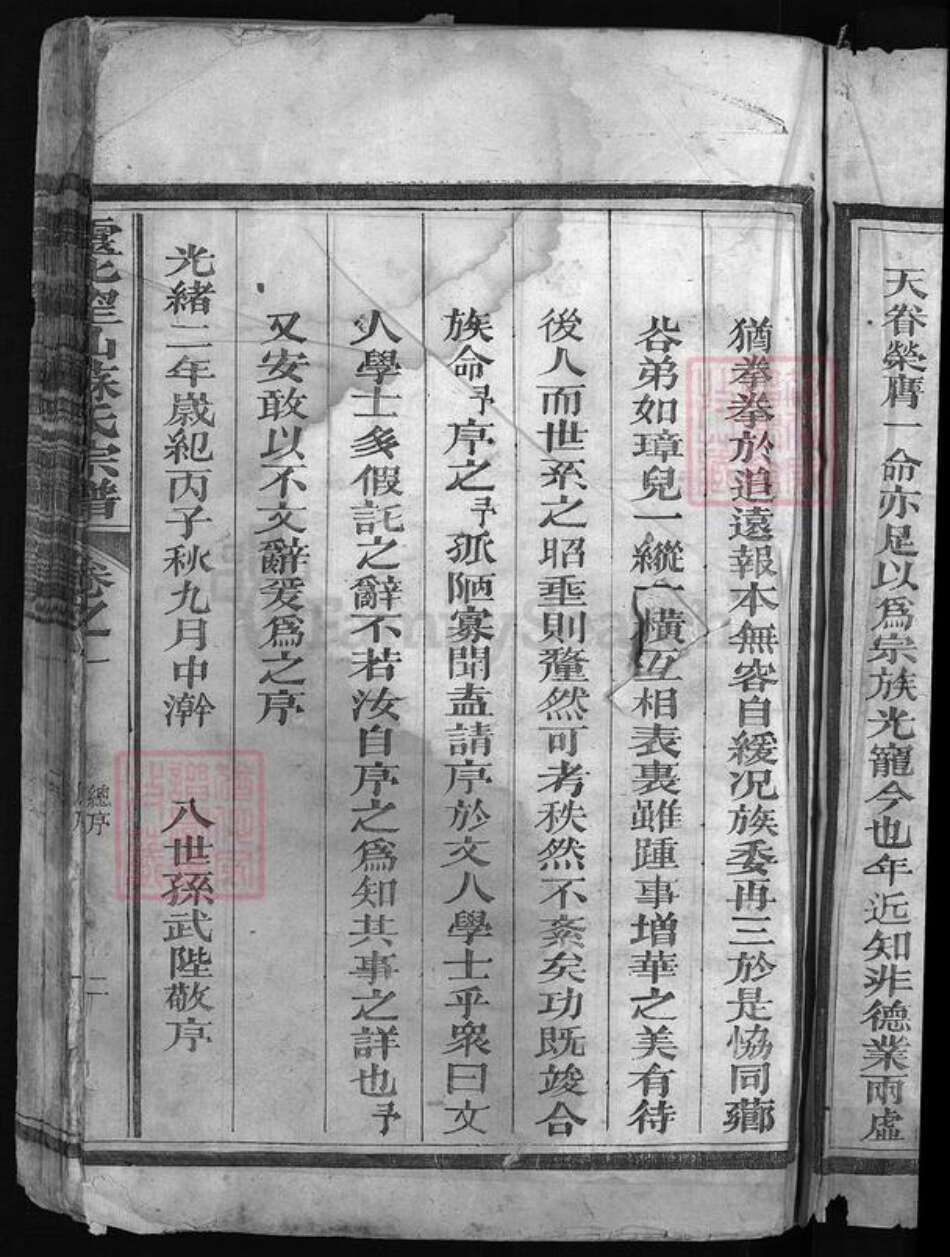 天眷榮膺一命亦足以爲宗族光寵今也年近知非德業兩虛
猶拳拳於追遠報本無容自緩况族委再三於是恊同薌
谷弟如璋兒一縱一橫互相表裏雖踵事增華之美有待
後人而世系之昭垂則釐然可考秩然不紊矣功既竣合
族命予序之予孤陋寡聞盍請序於文人學士乎衆曰文
人學士多假託之辭不若汝自序之爲知其事之詳也予
又安敢以不文辭爰爲之序
光緒二年嵗紀丙子秋九月中澣　八世孫武陛敬序
山蘇氏宗譜 卷之一 總序 二